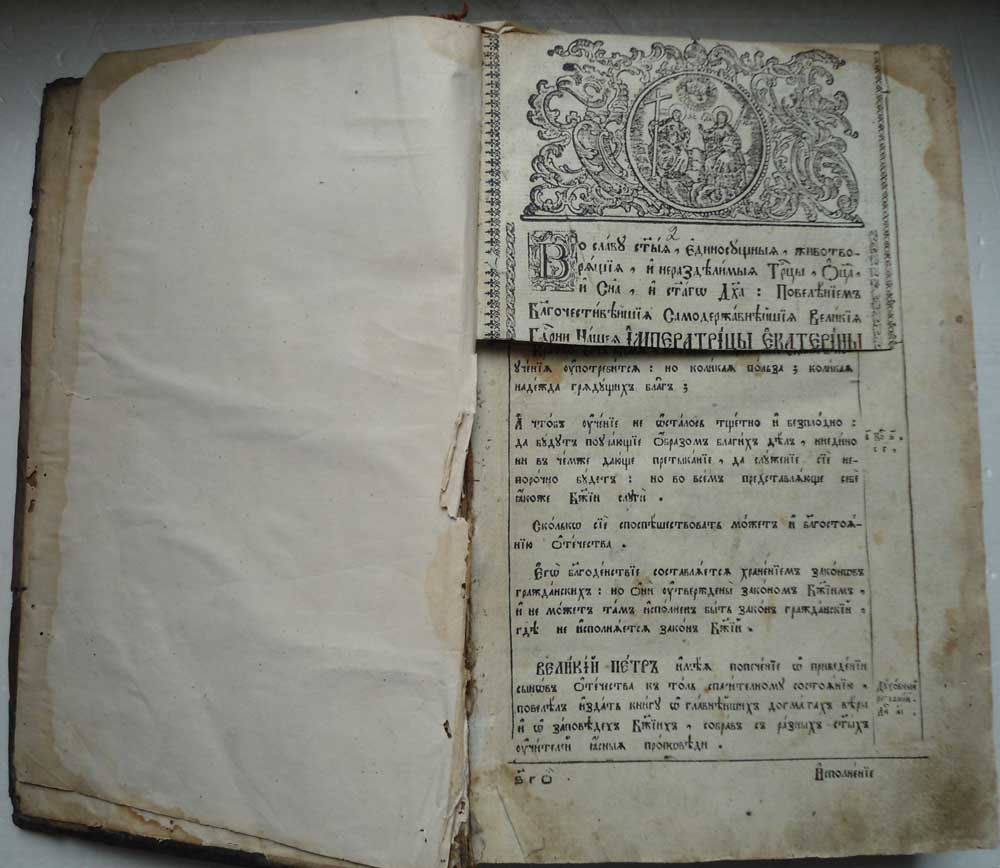 2
Во славу ст҃ыѧ, Єдиносущныѧ, животво-
рѧщїѧ, и нераздѣлимыѧ Трⷪ҇цы, Ѻц҃а,
и Сн҃а, и ст҃агѡ Дх҃а: Повелѣнїемъ
Блг҃очестивѣйшїѧ Самодержавнѣйшїѧ Великїѧ
Гдⷭ҇рни Нашеѧ ІМПЕРАТРІЦЫ ЄКАТЕРІНЫ
ученїѧ ѹпотребитсѧ: но коликаѧ польза; коликаѧ
надежда грѧдущихъ благъ;
А чтобъ ѹченїе не ѡсталось тщетно и безплодно:
да будутъ поучающїе ѡбразом благихъ дѣлъ, ниедино
ни въ чемже дающе претыканїе, да служенїе сїе не-
порочно будетъ: но во всемъ представлѧюще себе
ꙗкоже Бж҃їи слуги.
Сколькѡ сїе споспѣшествовать можетъ и благостоѧ-
нїю ѻтечества.
Єгѡ благоденствїе составлѧетсѧ храненїемъ законѡвъ
гражданскихъ: но ѻни ѹтверждены закономъ Бж҃їимъ,
и не можетъ тамъ исполненъ быть законъ гражданскїй,
гдѣ не исполнѧетсѧ законъ Бж҃їй.
ВЕЛИКІЙ ПЕТРЪ имѣѧ попеченїе ѡ приведенїи
сынѡвъ ѻтечества къ толь спасительному состоѧнїю,
повелѣлъ издать книгу ѡ главнѣйшихъ догматахъ вѣры
и ѡ заповѣдехъ Бж҃їихъ, собравъ съ разныхъ ст҃ыхъ
ѹчителей ꙗсныѧ проповѣди.
Дѹховный
регламен.
Исполненїе